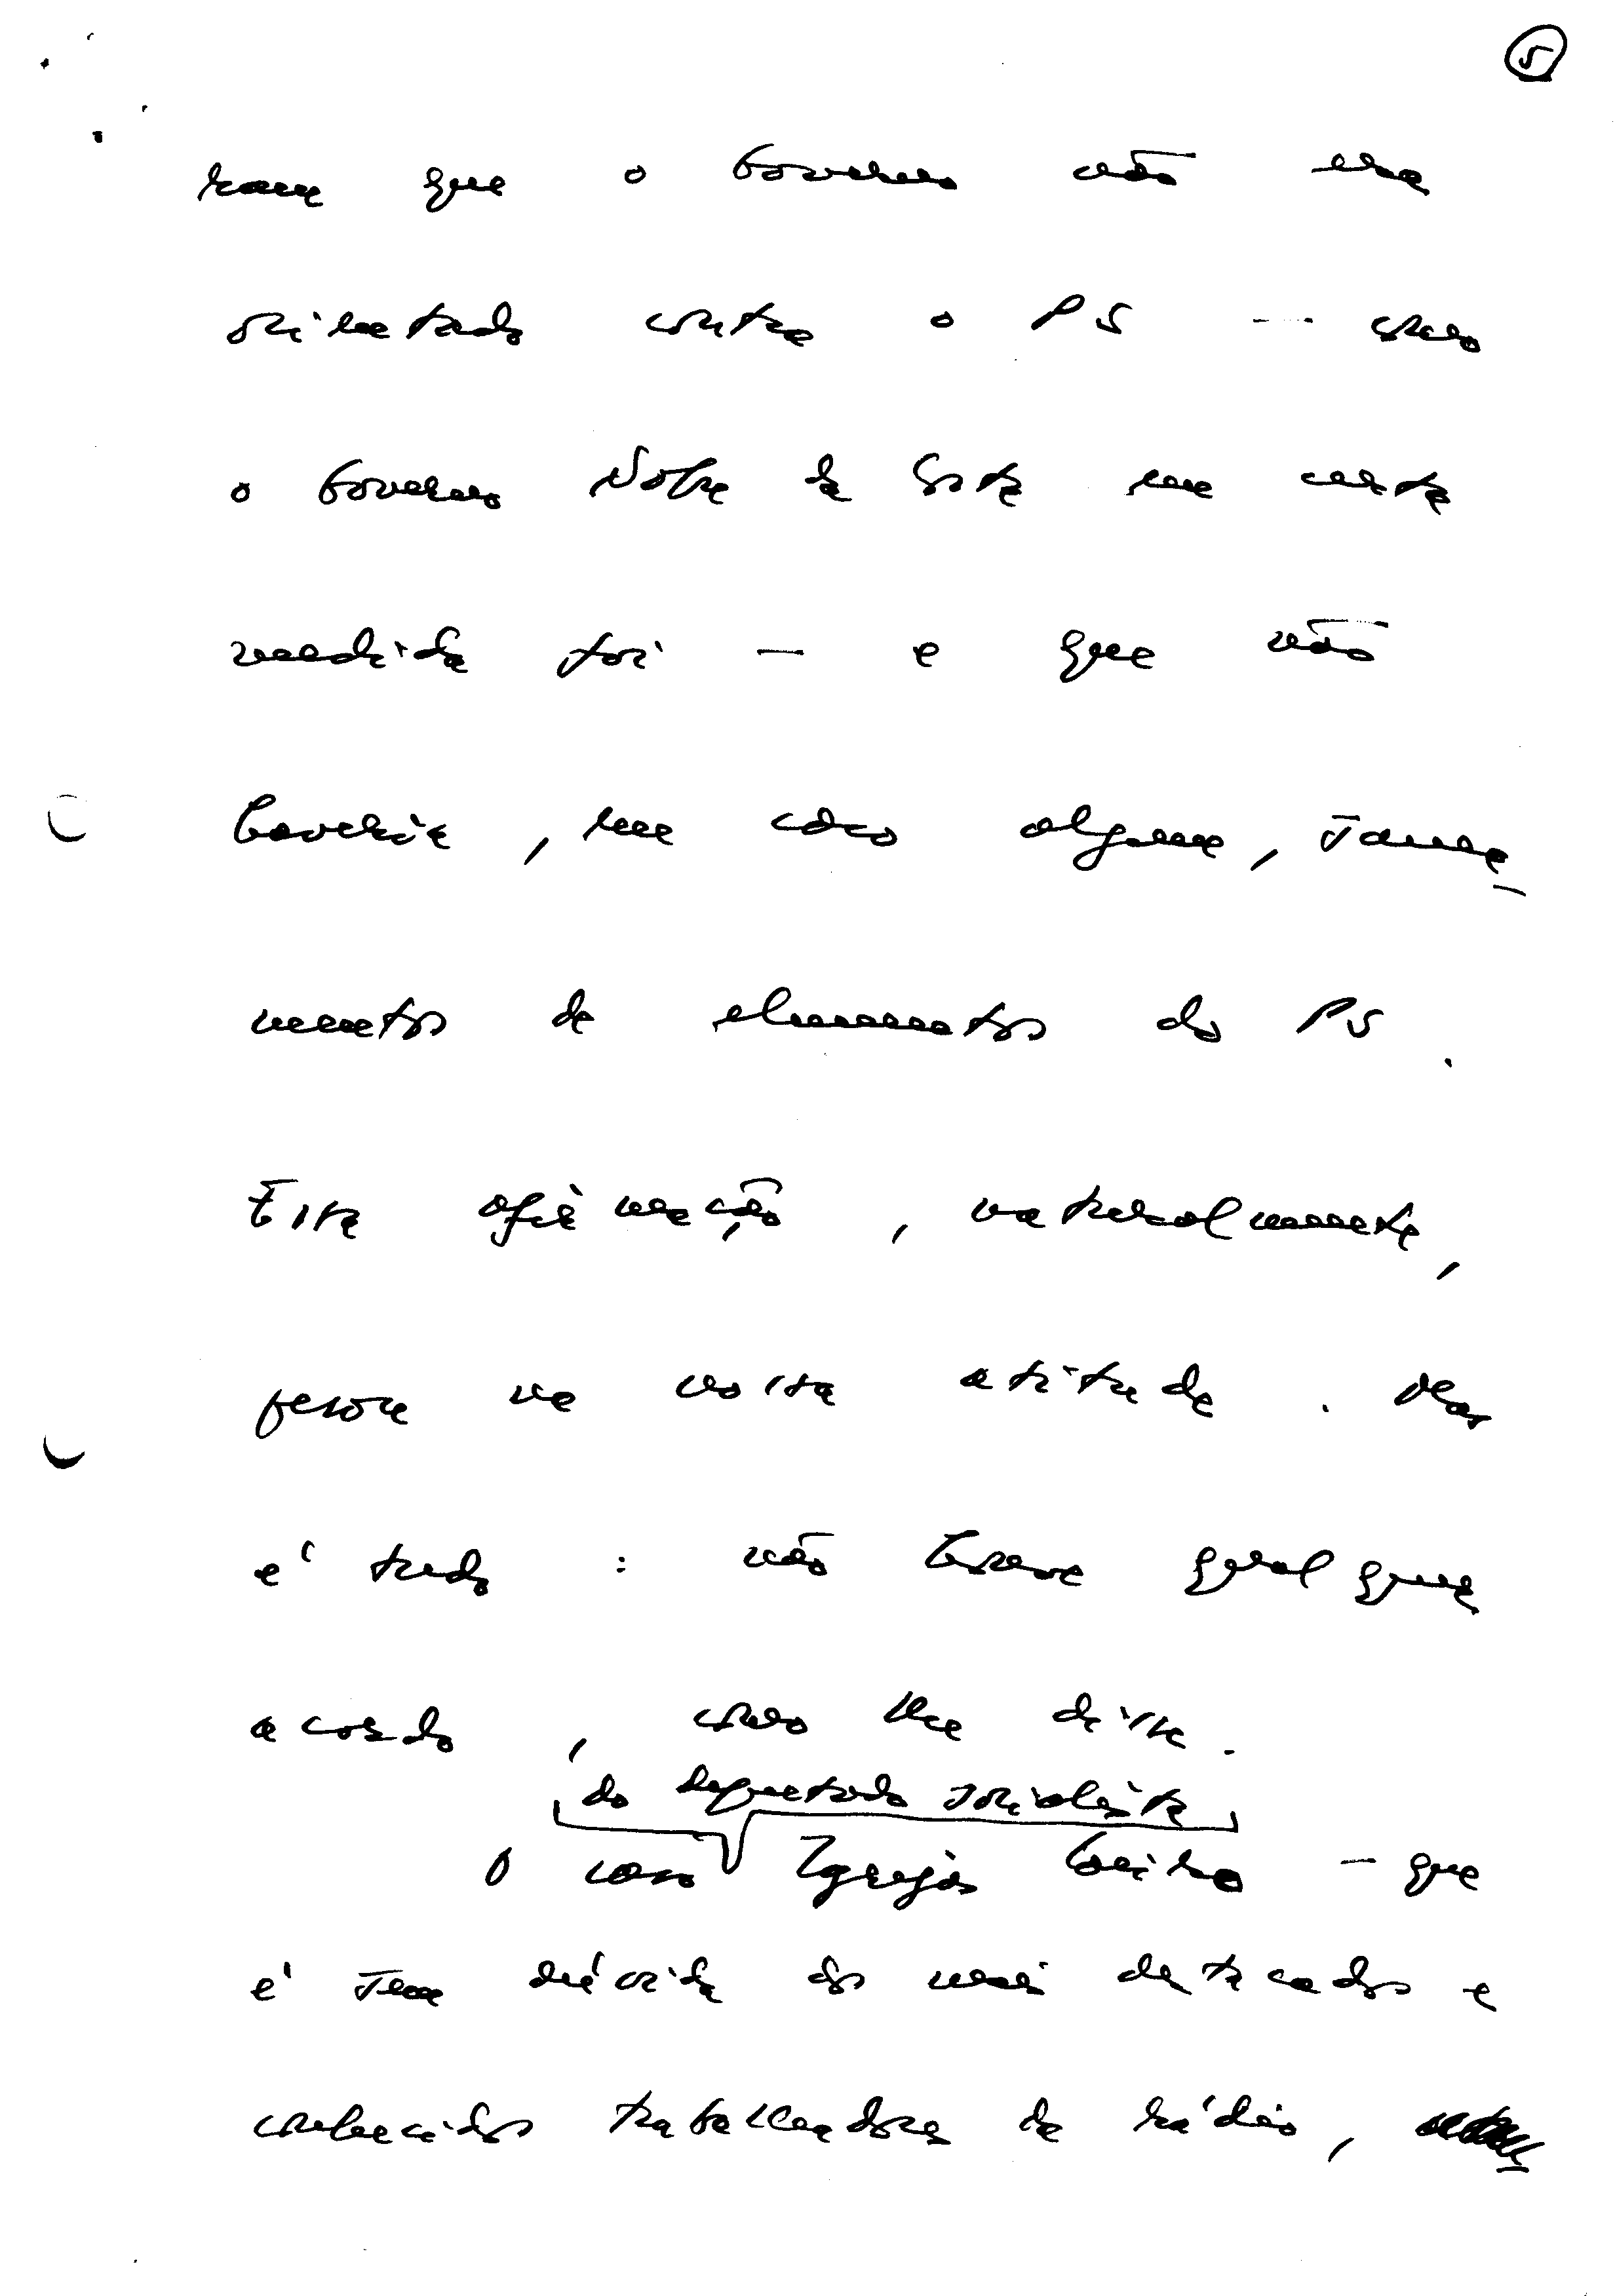 5
ram que o Governo não era
orientado contra o PS — como
o Governo Nobre da Costa em certa
medida foi — e que não
haveria, em caso algum, sanea-
mentos de elementos do PS.
Esta afirmação, naturalmente,
pesou na nossa atitude. Mas
é tudo: não houve qualquer
acordo, como lhe disse.
do deputado socialista
O caso Igrejas Caeiro — que
é sem dúvida dos mais destacados e
conhecidos trabalhadores da rádio,